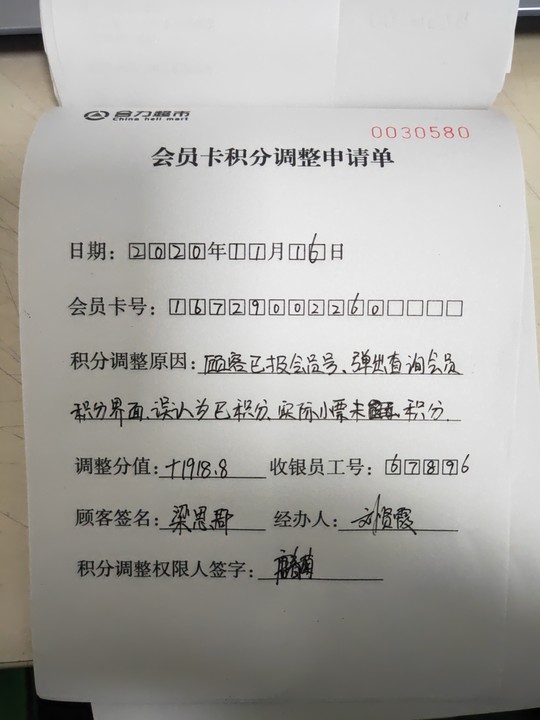 合力超市
China heli mart
0030580
会员卡积分调整申请单
日期：2020年11月16日
会员卡号：16729002260
积分调整原因：顾客已报会员号、弹出查询会员
积分界面、误认为已积分、实际小票未积分.
调整分值：+1918.8 收银员工号：67896
顾客签名：梁思郡 经办人：刘贤霞
积分调整权限人签字：